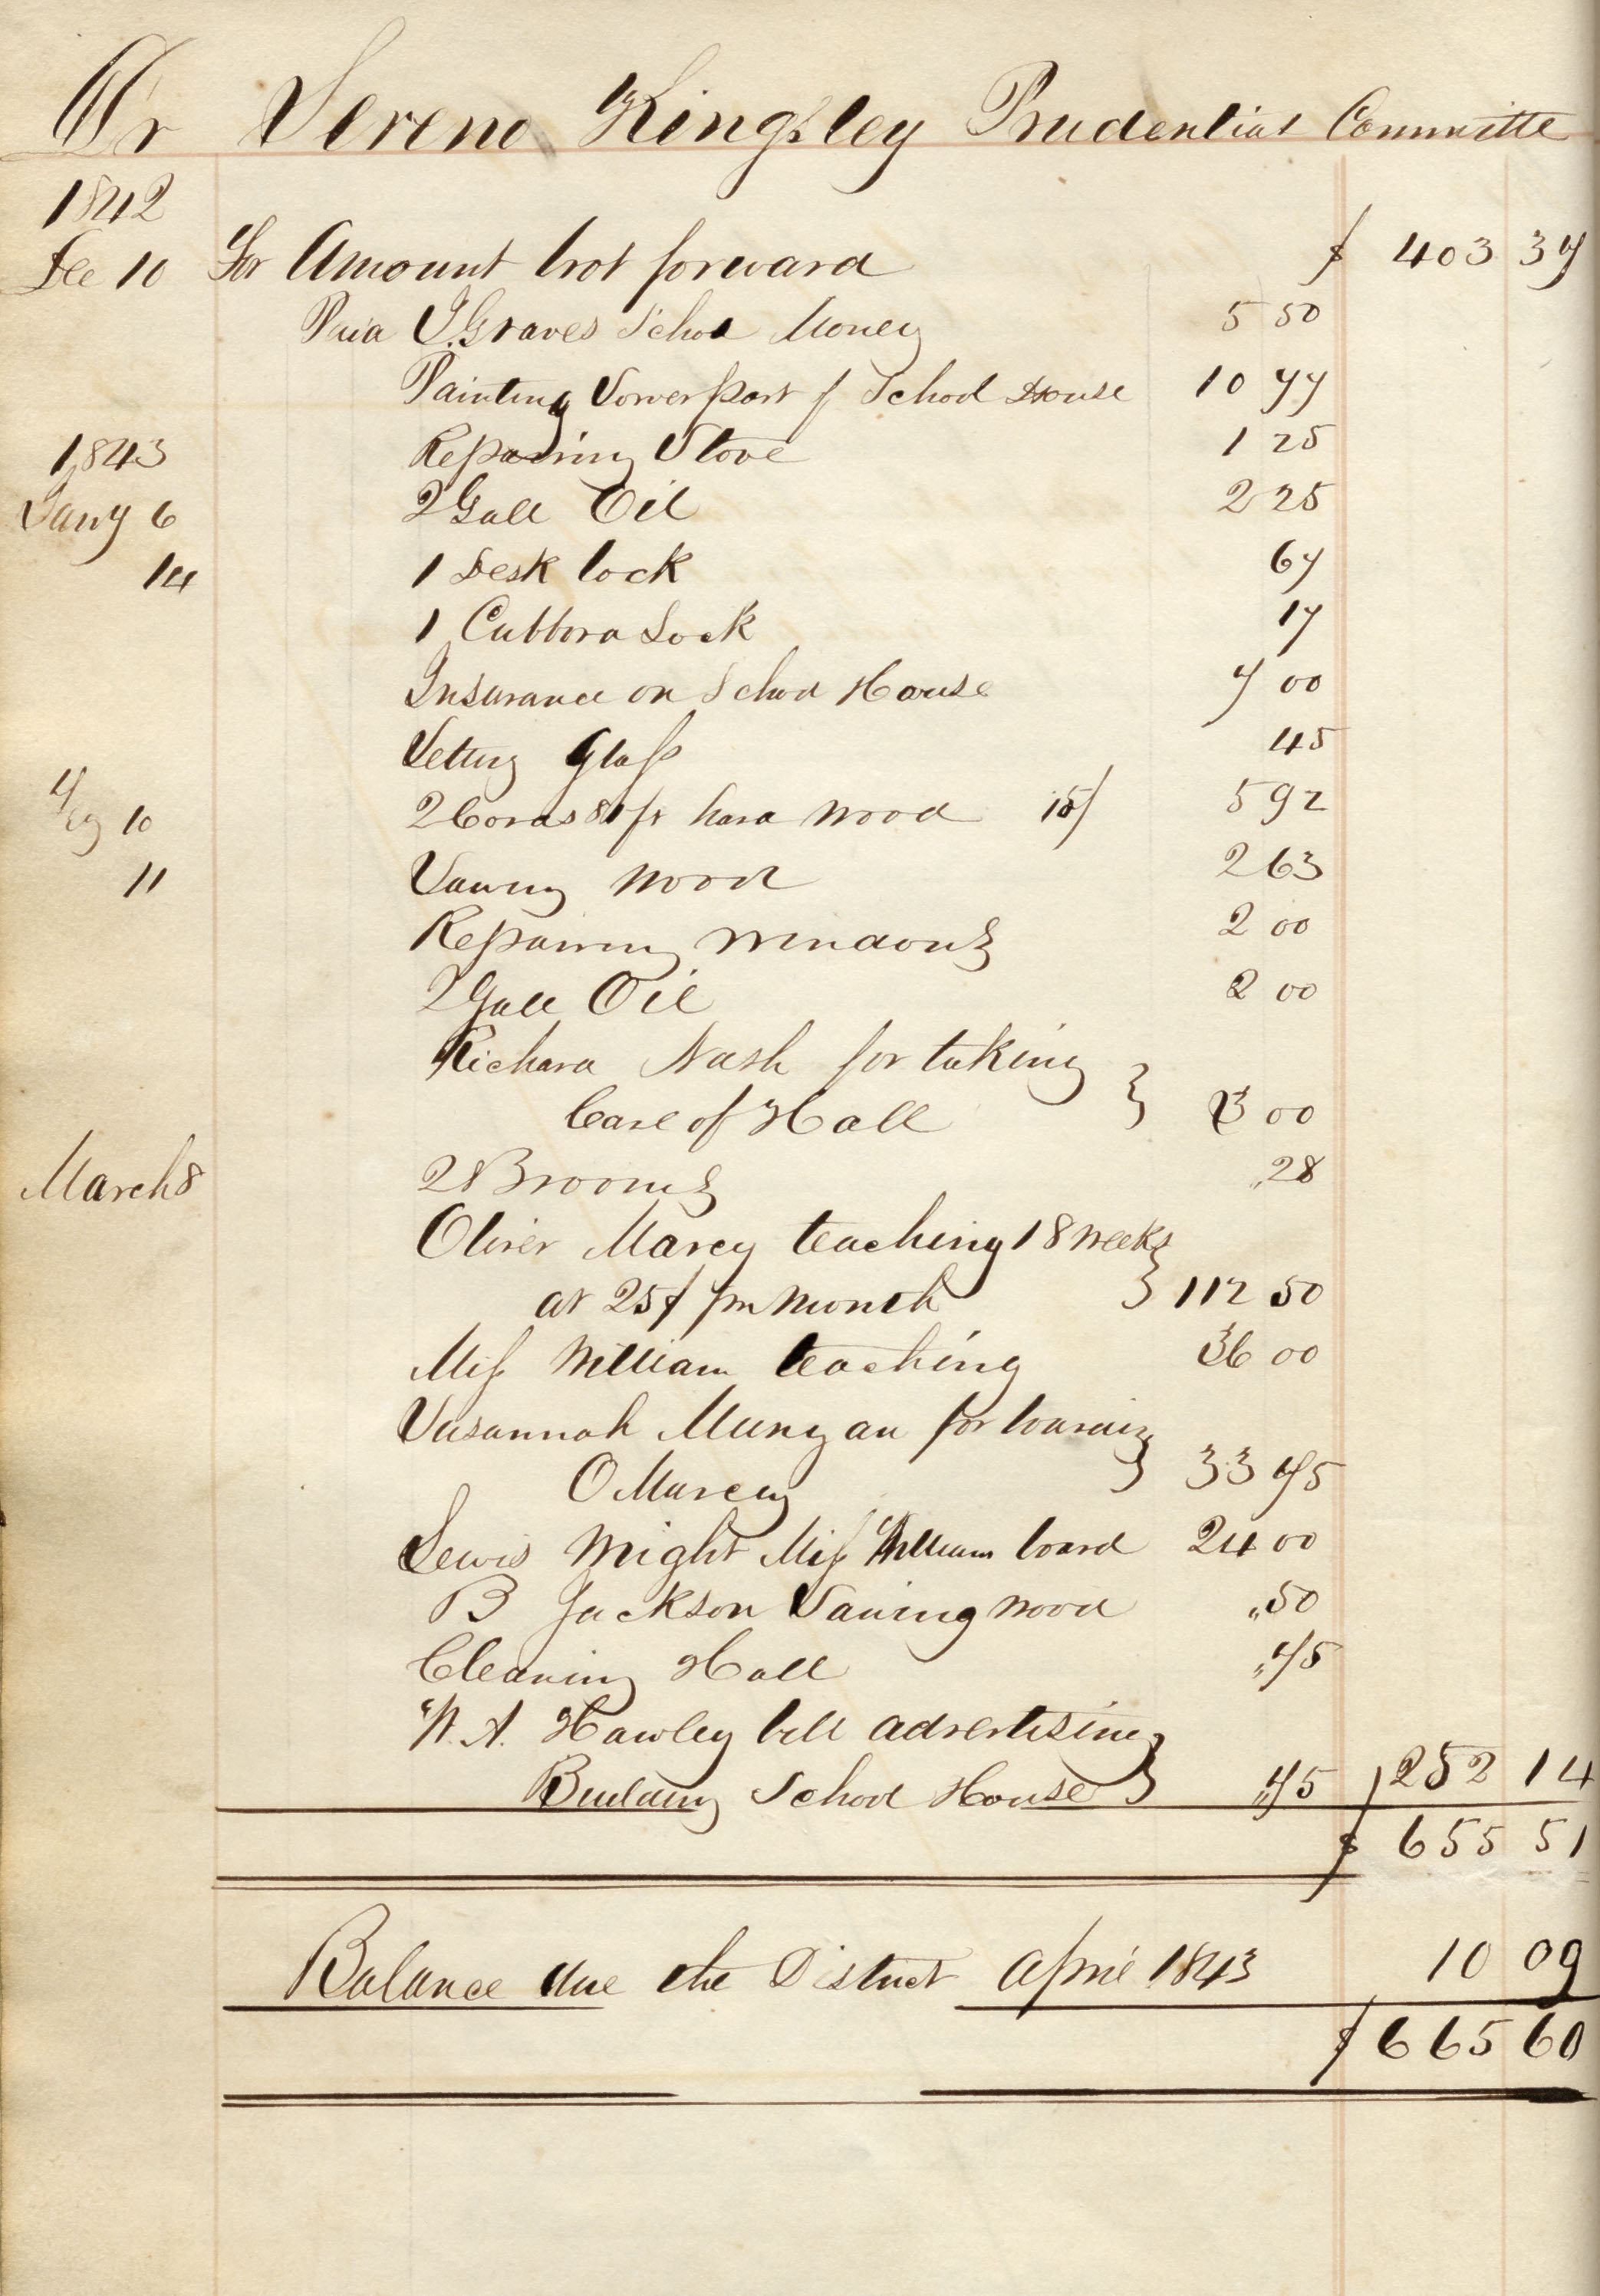 Dr Sereno Kingsley Prudential Committe
1842
Dec 10 For Amount brot forward $ 403 37
Paid J. Graves School Money 5 50
Painting Lower part of School House 10 77
1843 Repairing Stove 1 25
Jany 6 2 Gall Oil 2 25
14 1 Desk lock 67
1 Cubbord Lock 17
Insurance on School House 7 00
Setting Glass 45
10 2 Cords 81 ft hard Wood 15/ 5 92
11 Sawing Wood 2 63
Repairing Windows 2 00
2 Gall Oil 2 00
Richard Nash for taking
Care of Hall 3 00
March 8 2 Brooms "28
Oliver Marcy teaching 18 Weeks
at 25$ pr Month 112 50
Miss William teaching 36 00
Susannah Mungan for boarding
O Marcy 33 75
Lewis Wright Miss William board 24 00
B Jackson Sawing Wood "50
Cleaning Hall "75
W. A. Hawley bill advertising
Building School House "75 252 14
$ 655 51
Balance due the District April 1843 10 09
$ 665 60